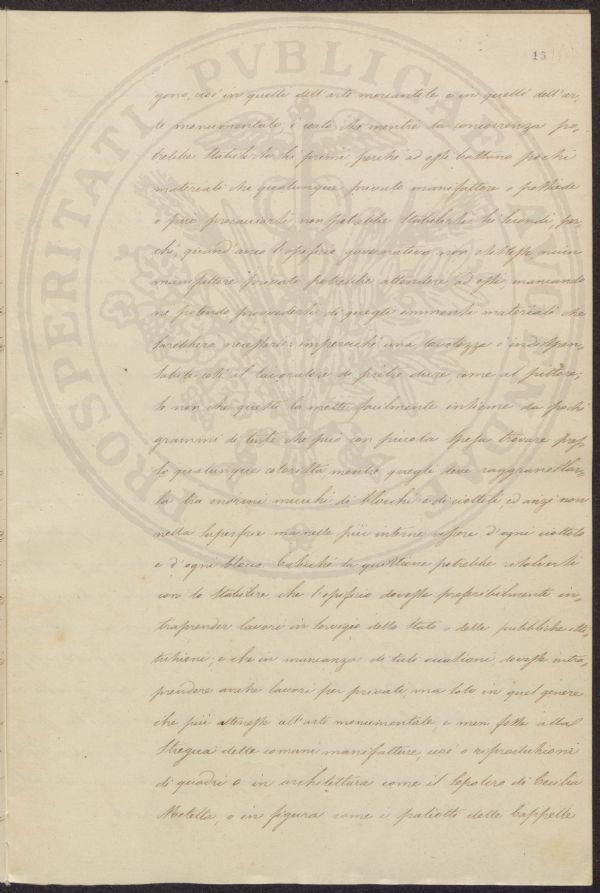 15
gono, cioè in quelle dell'arte mercantile e in quelle dell'ar-
te monumentale, è certo che mentre la concorrenza po-
trebbe stabilirsi tra primi, perché ad essi bastano pochi
materiali che qualunque privato manifattore o possiede
o può procacciarsi non potrebbe stabilirsi tra secondi, per-
ché, quand'anco l'opificio governativo non esistesse niun
manifattore privato potrebbe attendere ad essi mancando
né potendo provvedersi di quegli immensi materiali che
sarebbero necessari: imperocché una tavolozza è indispen-
sabile così al lavoratore di pietre dure come al pittore;
se non che questi la mette facilmente insieme da pochi
grammi di tinte che può con piccola spesa trovare pres-
so qualunque mentre quegli deve raggranellar-
la tra enormi mucchi di blocchi e di ciottoli ed anzi non
nella superficie ma nelle più interne viscere d'ogni ciottolo
e d'ogni blocco. Talché la questione potrebbe risolversi
con lo stabilire che l'opificio dovesse preferibilmente in-
traprender lavori in servizio dello Stato o delle pubbliche isti-
tuzioni; e che in mancanza di tali occasioni, dovesse intra-
prendere anche lavori per privati, ma solo in quel genere
che più attenesse all'arte monumentale, e men fosse alla
stregua delle comuni manifatture, cioè o reproduzioni
di quadri o in architettura come il sepolcro di Cecilia
Metella, o in figura come i paliotti delle Cappelle
PROSPERITATI PVBLICAE